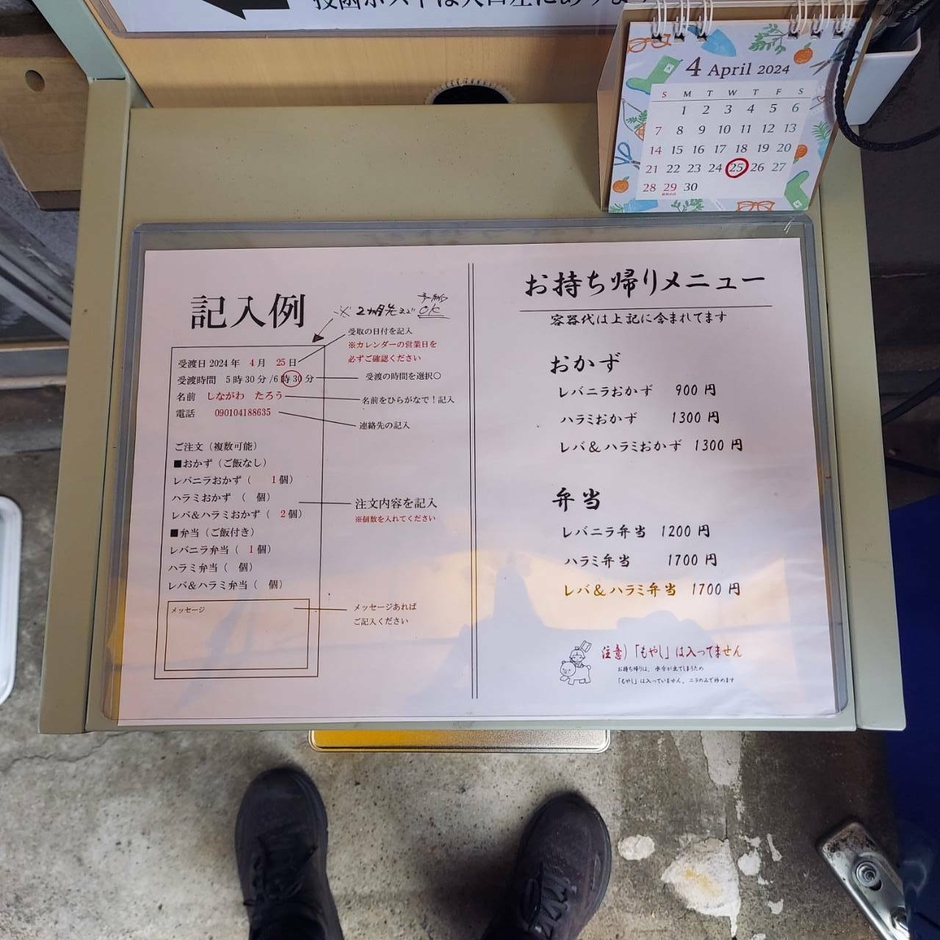 4 April 2024
S M T W T F S
1 2 3 4 5 6
7 8 9 10 11 12 13
14 15 16 17 18 19 20
21 22 23 24 25 26 27
28 29 30
記入例
※ 2ヶ月先まで
OK
受取の日付を記入
※カレンダーの営業日を
必ずご確認ください
受渡日 2024年 4月 25日
受渡時間 5時30分/6時30分
受渡の時間を選択〇
名前 しながわ たろう
名前をひらがなで!記入
電話 090104188635
連絡先の記入
ご注文(複数可能)
■おかず(ご飯なし)
レバニラおかず( 1個)
ハラミおかず( 個)
レバ&ハラミおかず( 2個)
注文内容を記入
※個数を入れてください
■弁当(ご飯付き)
レバニラ弁当( 1個)
ハラミ弁当( 個)
レバ&ハラミ弁当( 個)
メッセージ
メッセージあれば
ご記入ください
お持ち帰りメニュー
容器代は上記に含まれてます
おかず
レバニラおかず 900円
ハラミおかず 1300円
レバ&ハラミおかず 1300円
弁当
レバニラ弁当 1200円
ハラミ弁当 1700円
レバ&ハラミ弁当 1700円
注意)「もやし」は入ってません
お持ち帰りは、水分が出てしまうため
「もやし」は入っていません。ニラのみで炒めます